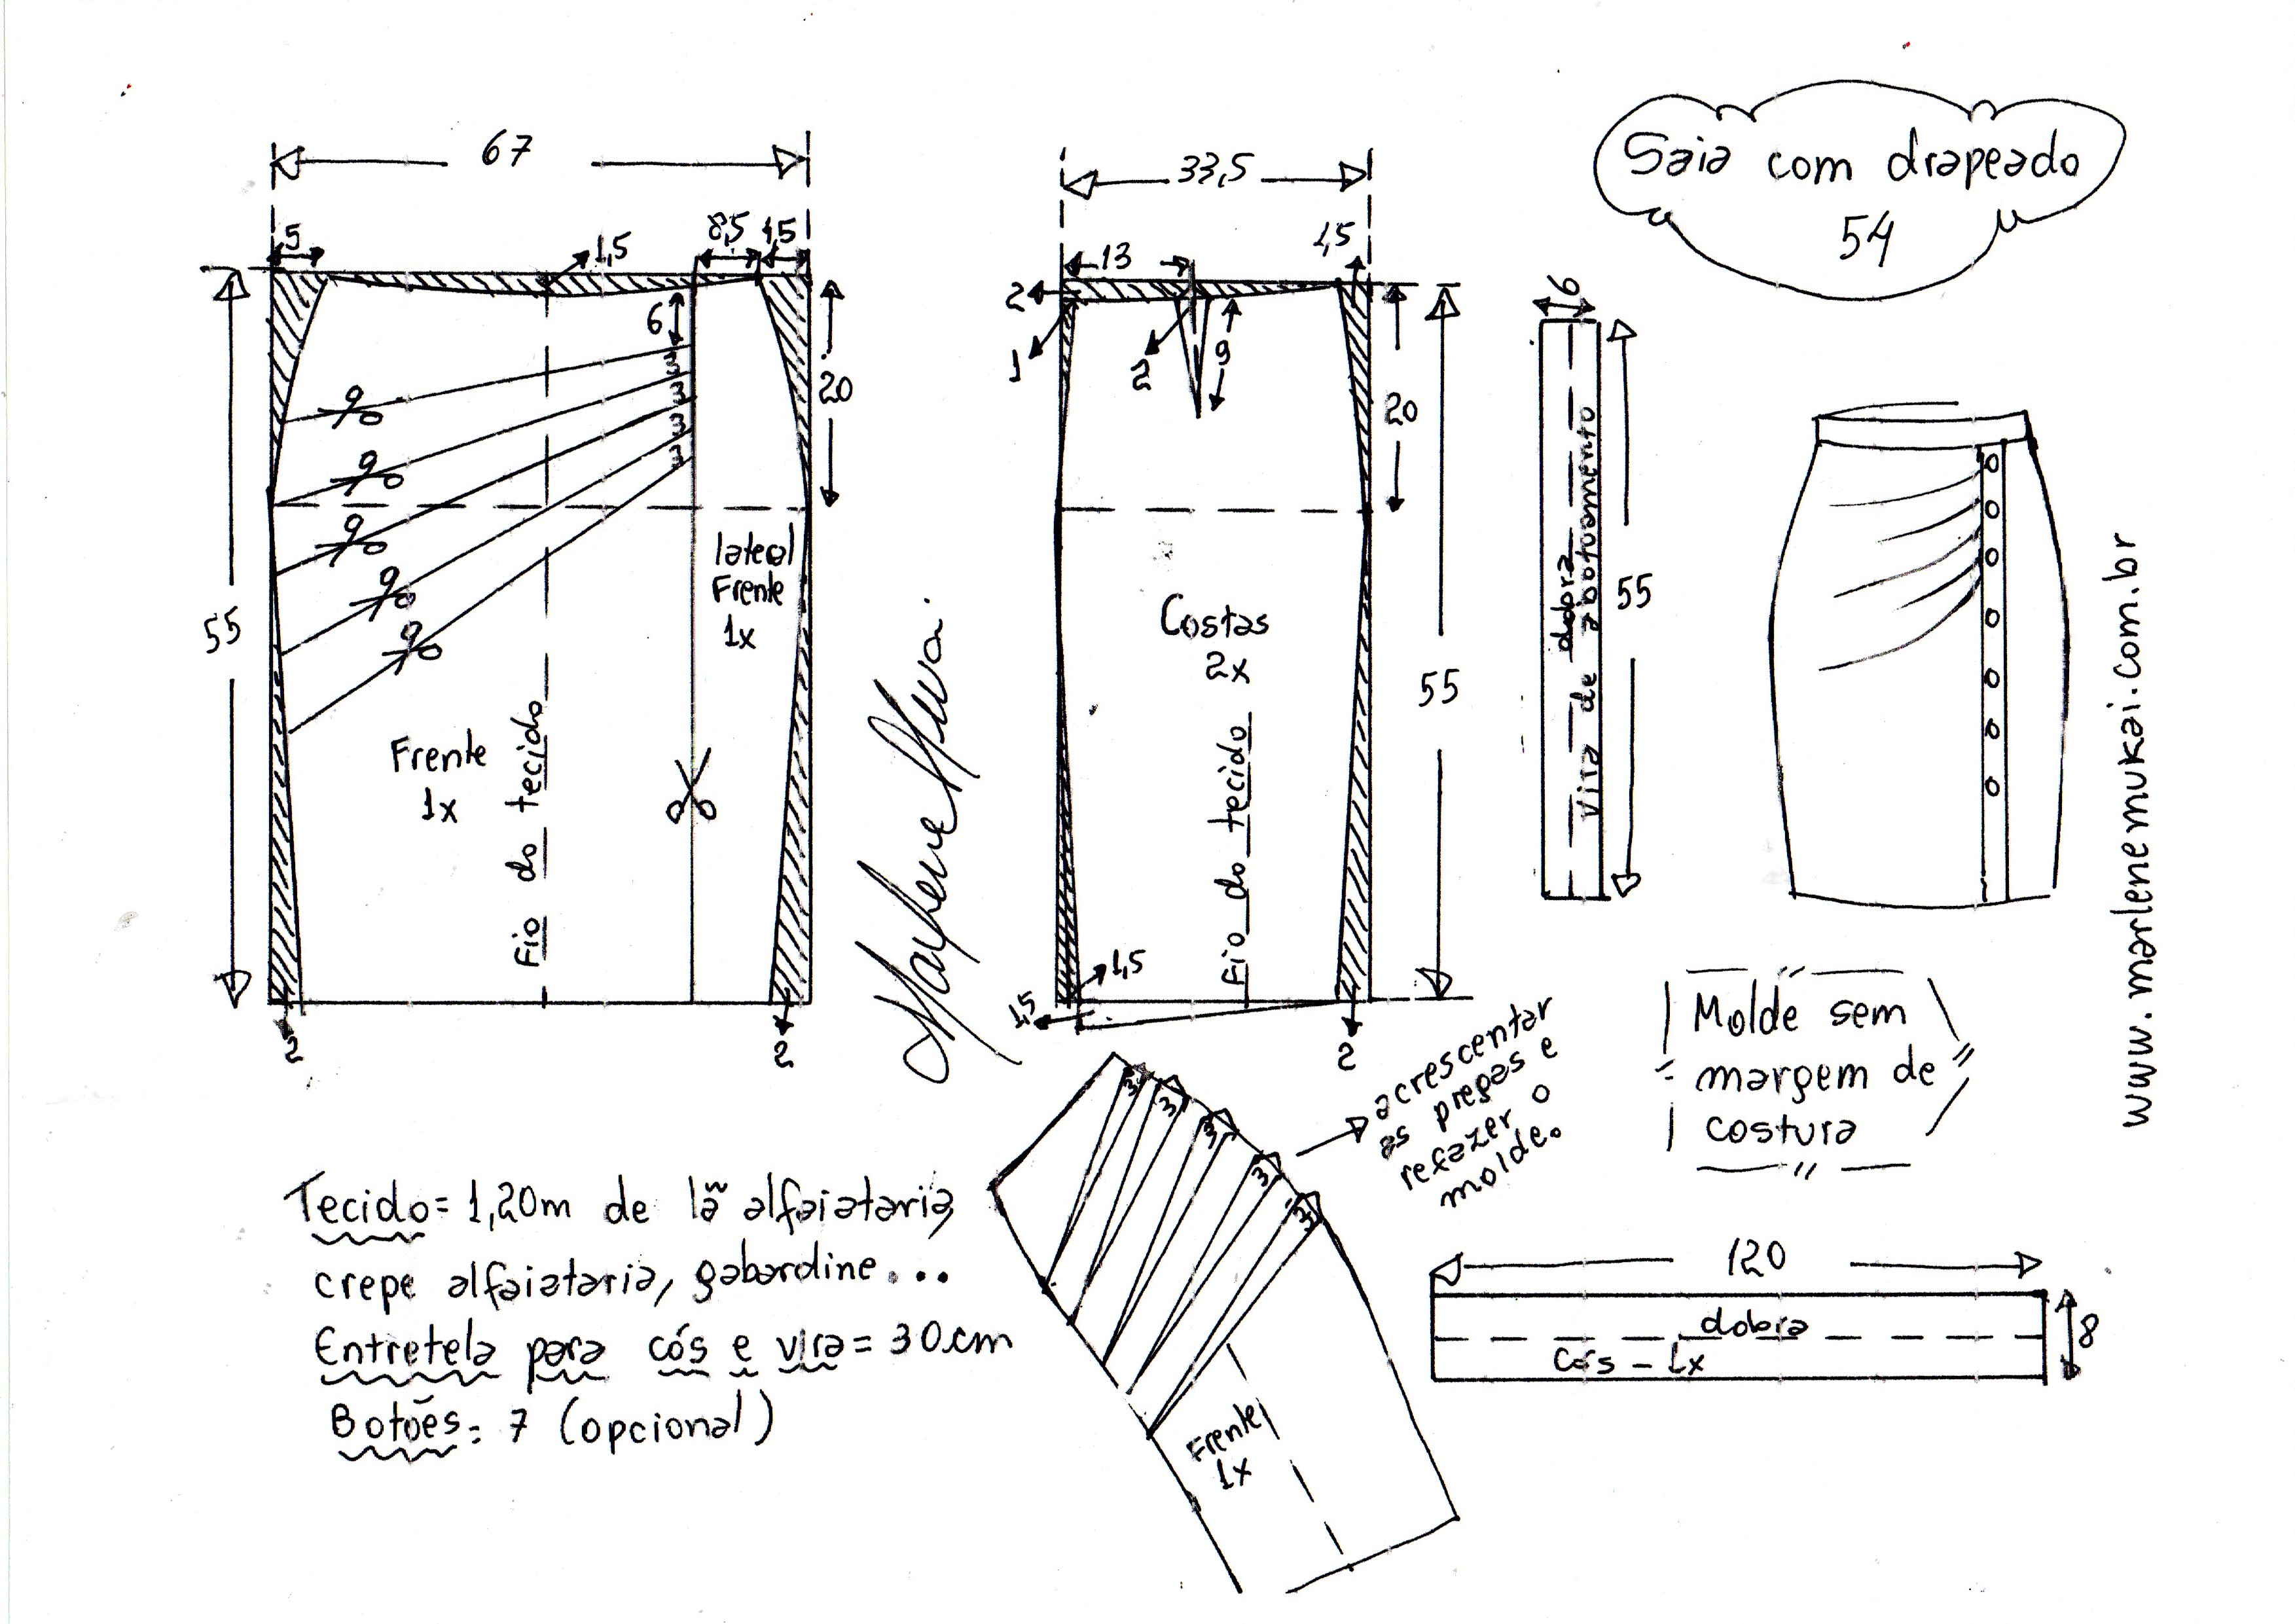 Saia com drapeado
54
67
5
1,5
8,5
4,5
6
3
3
3
3
3
20
55
lateral
Frente
1x
Frente
1x
Fio do tecido
2
2
33,5
13
1,5
2
1
2
9
20
55
Costas
2x
Fio do tecido
1,5
1,5
2
6
dobra
Vira de abotoamento
55
www.marlenemukai.com.br
Marlene Mukai
Molde sem
margem de
costura
acrescentar
as pregas e
refazer o
molde.
3
3
3
3
3
Frente
1x
120
dobra
cós - 1x
8
Tecido = 1,20m de lã alfaiataria,
crepe alfaiataria, gabardine...
Entretela para cós e vira = 30cm
Botões = 7 (opcional)